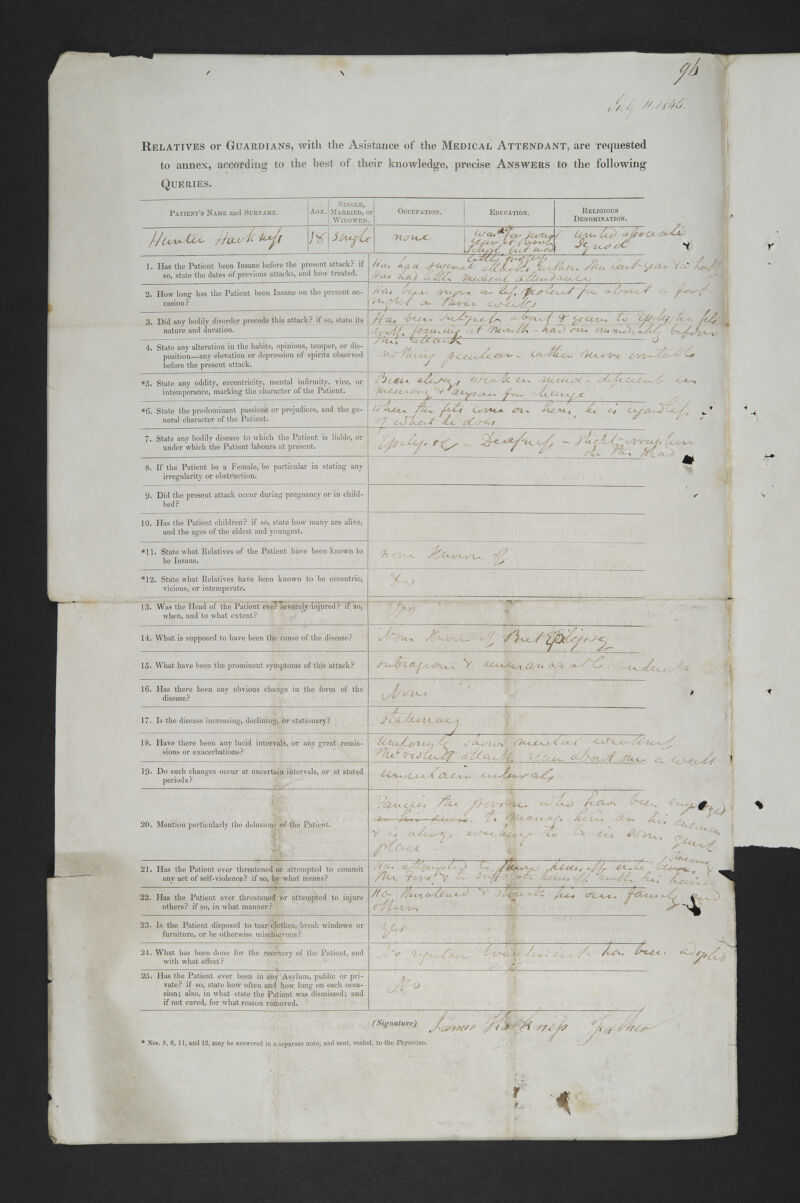 96
July 11. 1845.
RELATIVES or GUARDIANS, with the Asistance of the MEDICAL ATTENDANT, are requested
to annex, according to the best of their knowledge, precise ANSWERS to the following
QUERIES.
PATIENT'S NAME and SURNAME.
AGE.
SINGLE,
MARRIED, or
WIDOWED.
OCCUPATION.
EDUCATION.
RELIGIOUS
DENOMINATION.
Hunter Harkness
18
Single
none
was for several
years at Parish
School but made
little progress
United associate
Synod
1. Has the Patient been Insane before the present attack? if
so, state the dates of previous attacks, and how treated.
Has had several attacks within the last year & a half
Has had little medical attendance
2. How long has the Patient been Insane on the present oc-
casion?
Has been more or less violent for about a fort-
night or three weeks
3. Did any bodily disorder precede this attack? if so, state its
nature and duration.
Has been subject about 8 years to epileptic fits
with foaming at mouth - had one immediately before
this attack
4. State any alteration in the habits, opinions, temper, or dis-
position—any elevation or depression of spirits observed
before the present attack.
nothing peculiar - rather more irritable
*5. State any oddity, eccentricity, mental infirmity, vice, or
intemperance, marking the character of the Patient.
Been always weak in mind - deficient in
memory & anxious for change
*6. State the predominant passions or prejudices, and the ge-
neral character of the Patient.
when the fits come on him, he is regardless
of what he does
7. State any bodily disease to which the Patient is liable, or
under which the Patient labours at present.
Epileptic - Deafness - slight eruption
on the Head
8. If the Patient be a Female, be particular in stating any
irregularity or obstruction.
9. Did the present attack occur during pregnancy or in child-
bed?
10. Has the Patient children? if so, state how many are alive,
and the ages of the eldest and youngest.
*11. State what Relatives of the Patient have been known to
be Insane.
none known of
*12. State what Relatives have been known to be eccentric,
vicious, or intemperate.
Do
13. Was the Head of the Patient ever severely injured? if so,
when, and to what extent?
14. What is supposed to have been the cause of the disease?
None known of But Epilepsy
15. What have been the prominent symptoms of this attack?
outrageous & unmanageable
16. Has there been any obvious change in the form of the
disease?
None
17. Is the disease increasing, declining, or stationary?
Stationary
18. Have there been any lucid intervals, or any great remis-
sions or exacerbations?
Uniformly shows mental weakness
The violent attacks been about one a week
19. Do such changes occur at uncertain intervals, or at stated
periods?
uncertain intervals
20. Mention particularly the delusions of the Patient.
Fancies the persons who have been engaged
to manage him are his enemies
& is always wanting to be in some quiet
place
21. Has the Patient ever threatened or attempted to commit
any act of self-violence? if so, by what means?
Has attempted to throw himself into streams,
the fire & to suffocate himself with his hands
22. Has the Patient ever threatened or attempted to injure
others? if so, in what manner?
Has threatened & struck his own family and
others
23. Is the Patient disposed to tear clothes, break windows or
furniture, or be otherwise mischievous?
Yes
24. What has been done for the recovery of the Patient, and
with what effect?
No regular treatment has been adopted
25. Has the Patient ever been in any Asylum, public or pri-
vate? if so, state how often and how long on each occa-
sion; also, in what state the Patient was dismissed; and
if not cured, for what reason removed.
No
(Signature)
James Harkness father
* Nos. 5, 6, 11, and 12, may be answered in a separate note, and sent, sealed, to the Physician.